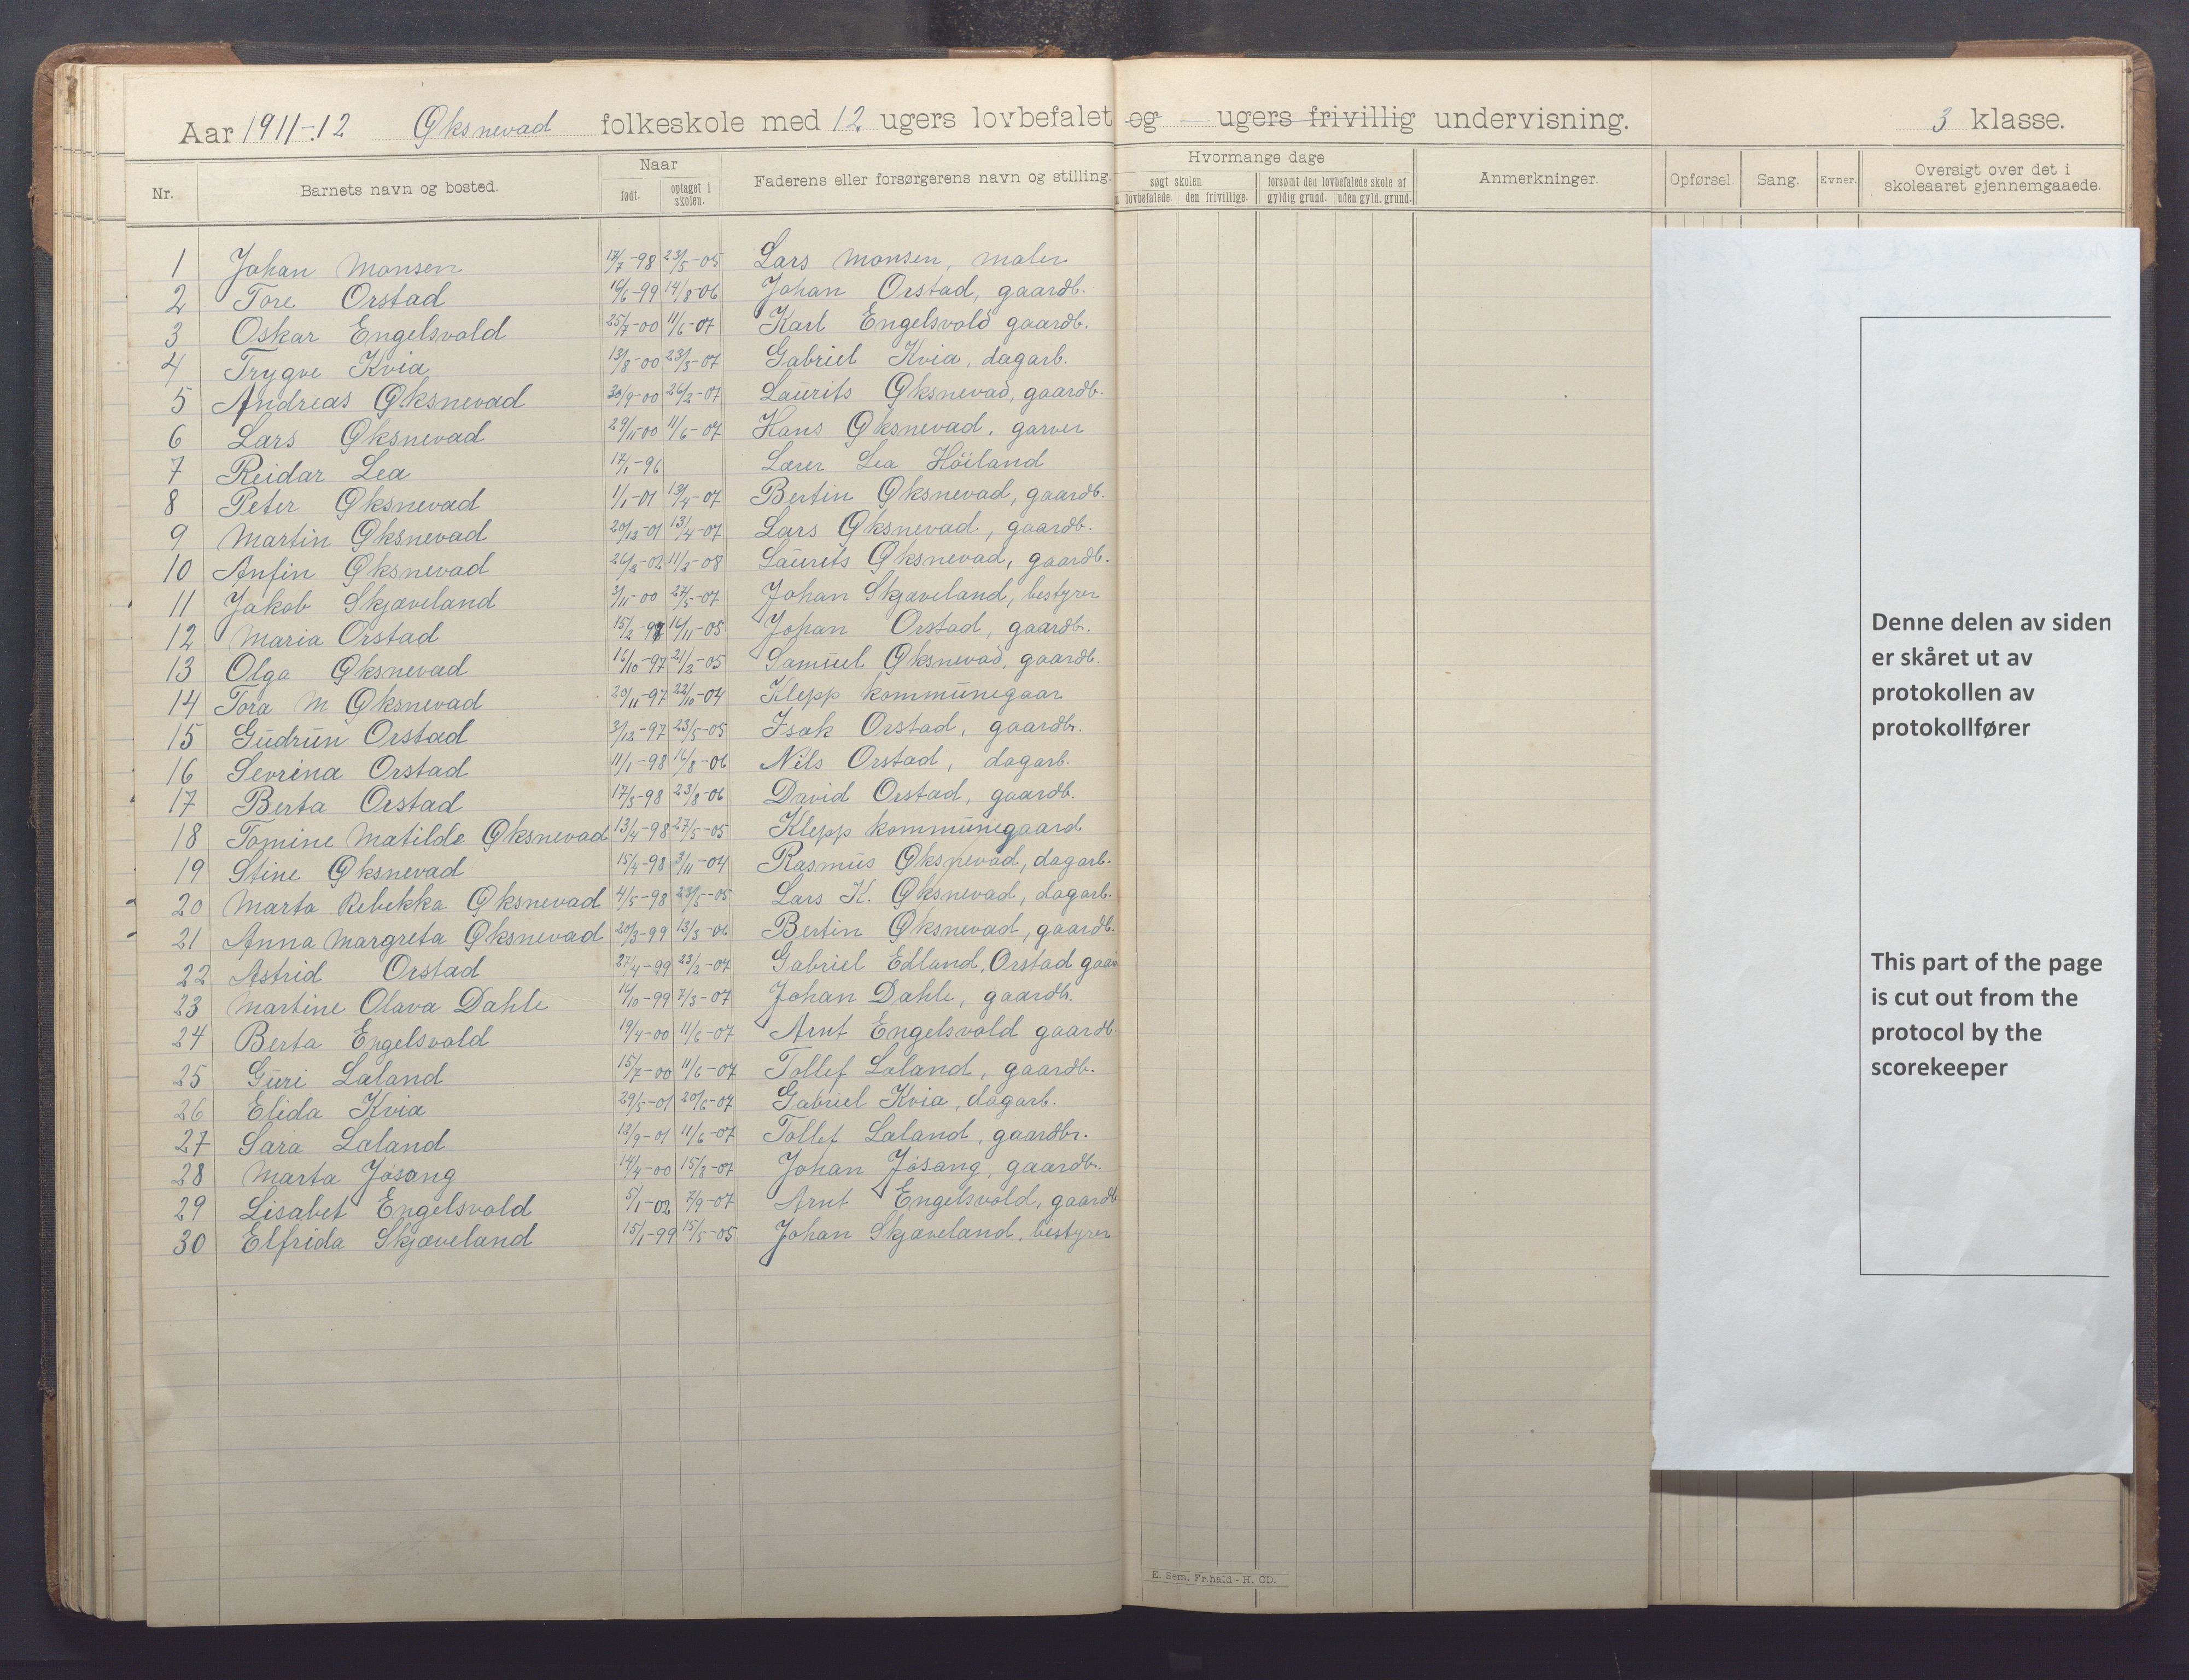 Aar 1911-12 Øksnevad folkeskole med 12 ugers lovbefalet og — ugers frivillig undervisning. 3 klasse.
Nr. Barnets navn og bosted. Naar født. optaget i skolen. Faderens eller forsørgerens navn og stilling. Hvormange dage søgt skolen lovbefalede. den frivillige. forsømt den lovbefalede skole af gyldig grund. uden gyld. grund. Anmerkninger. Opførsel. Sang. Evner. Oversigt over det i skoleaaret gjennemgaaede.
1 Johan Monsen 17/7-98 23/5-05 Lars Monsen, maler
2 Tore Orstad 16/6-99 14/8-06 Johan Orstad, gaardb.
3 Oskar Engelsvold 25/7-00 11/6-07 Karl Engelsvold gaardb.
4 Trygve Kvia 13/8-00 23/5-07 Gabriel Kvia, dagarb.
5 Andreas Øksnevad 30/9-00 26/2-07 Laurits Øksnevad, gaardb.
6 Lars Øksnevad 29/11-00 11/6-07 Hans Øksnevad, garver
7 Reidar Lea 17/1-96 Lærer Lea Höiland
8 Peter Øksnevad 1/1-01 13/4-07 Bertin Øksnevad, gaardb.
9 Martin Øksnevad 20/12-01 13/4-07 Lars Øksnevad, gaardb.
10 Anfin Øksnevad 26/2-02 11/2-08 Laurits Øksnevad, gaardb.
11 Jakob Skjæveland 3/11-00 27/5-07 Johan Skjæveland, bestyrer
12 Maria Orstad 15/2-98 16/11-05 Johan Orstad, gaardb.
13 Olga Øksnevad 16/10-97 21/2-05 Samuel Øksnevad, gaardb.
14 Tora M Øksnevad 20/11-97 22/10-04 Klepp kommunegaar
15 Gudrun Orstad 3/12-97 23/5-05 Isak Orstad, gaardbr.
16 Sevrina Orstad 11/1-98 16/8-06 Nils Orstad, dagarb.
17 Berta Orstad 17/3-98 23/8-06 David Orstad, gaardb.
18 Tomine Matilde Øksnevad 13/4-98 27/5-05 Klepp kommunegaard
19 Stine Øksnevad 15/4-98 3/11-04 Rasmus Øksnevad, dagarb.
20 Marta Rebekka Øksnevad 4/5-98 23/5-05 Lars K. Øksnevad, dagarb.
21 Anna Margreta Øksnevad 20/3-99 13/3-06 Bertin Øksnevad, gaardb.
22 Astrid Orstad 27/4-99 23/2-07 Gabriel Edland, Orstad gaar
23 Martine Olava Dahle 16/10-99 7/3-07 Johan Dahle, gaardb.
24 Berta Engelsvold 19/4-00 11/6-07 Arnt Engelsvold gaardb
25 Guri Laland 15/7-00 11/6-07 Tollef Laland, gaardb.
26 Elida Kvia 29/5-01 20/6-07 Gabriel Kvia, dagarb.
27 Sara Laland 13/9-01 11/6-07 Tollef Laland, gaardbr.
28 Marta Jøsang 14/4-00 15/8-07 Johan Jøsang, gaardb.
29 Lisabet Engelsvold 5/1-02 7/9-07 Arnt Engelsvold, gaardb
30 Elfrida Skjæveland 15/1-99 15/5-05 Johan Skjæveland, bestyrer
E. Sem. Fr.hald - H. CD.
Denne delen av siden
er skåret ut av
protokollen av
protokollfører
This part of the page
is cut out from the
protocol by the
scorekeeper